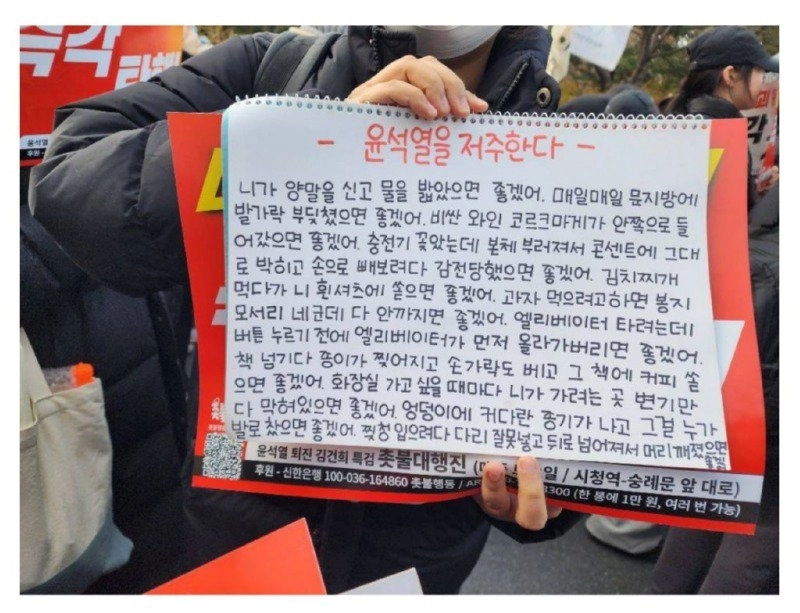 즉각
탄핵
윤석열
후원 -
- 윤석열을 저주한다 -
니가 양말을 신고 물을 밟았으면 좋겠어. 매일매일 문지방에
발가락 부딪쳤으면 좋겠어. 비싼 와인 코르크마개가 안쪽으로 들
어갔으면 좋겠어. 충전기 꽂았는데 본체 부러져서 콘센트에 그대
로 박히고 손으로 빼보려다 감전당했으면 좋겠어. 김치찌개
먹다가 니 흰셔츠에 쏟으면 좋겠어. 과자 먹으려고하면 봉지
모서리 네군데 다 안까지면 좋겠어. 엘리베이터 타려는데
버튼 누르기 전에 엘리베이터가 먼저 올라가버리면 좋겠어.
책 넘기다 종이가 찢어지고 손가락도 베고 그 책에 커피 쏟
으면 좋겠어. 화장실 가고 싶을 때마다 니가 가려는 곳 변기만
다 막혀있으면 좋겠어. 엉덩이에 커다란 종기가 나고 그걸 누가
발로 찼으면 좋겠어. 찢청 입으려다 다리 잘못넣고 뒤로 넘어져서 머리 깨졌으면
좋겠어
윤석열 퇴진 김건희 특검 촛불대행진 일 / 시청역-숭례문 앞 대로)
후원 - 신한은행 100-036-164860 촛불행동 / 3300 (한 통에 1만 원, 여러 번 가능)